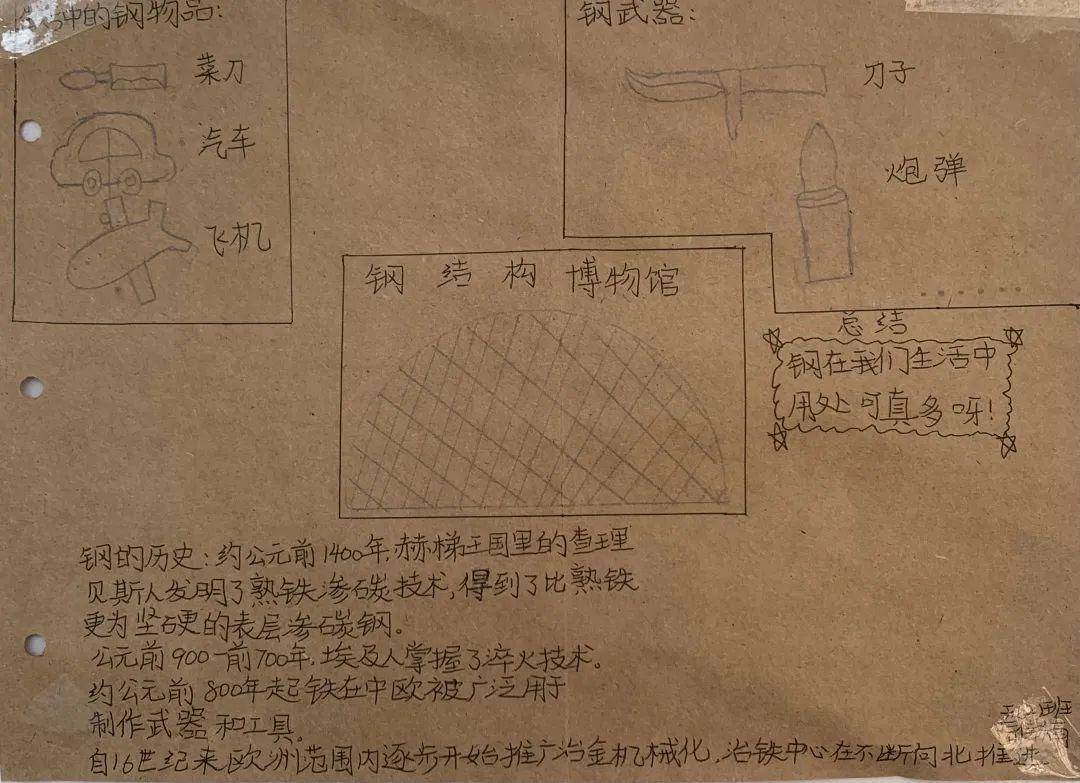 中的钢物品:
菜刀
汽车
飞机
钢武器:
刀子
炮弹
钢结构博物馆
总结
钢在我们生活中
用处可真多呀!
钢的历史:约公元前1400年,赫梯王国里的查理
贝斯人发明了熟铁渗碳技术,得到了比熟铁
更为坚硬的表层渗碳钢。
公元前900一前700年,埃及人掌握了淬火技术。
约公元前800年起铁在中欧被广泛用于
制作武器和工具。
自16世纪来欧洲范围内逐步开始推广冶金机械化,冶铁中心在不断向北推进
班